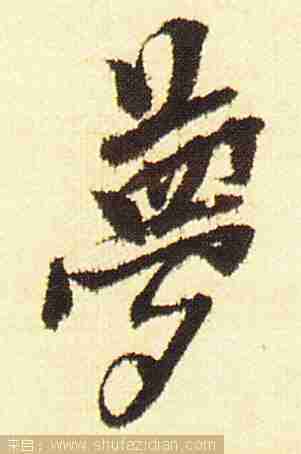 夢
来自：www.shufazidian.com